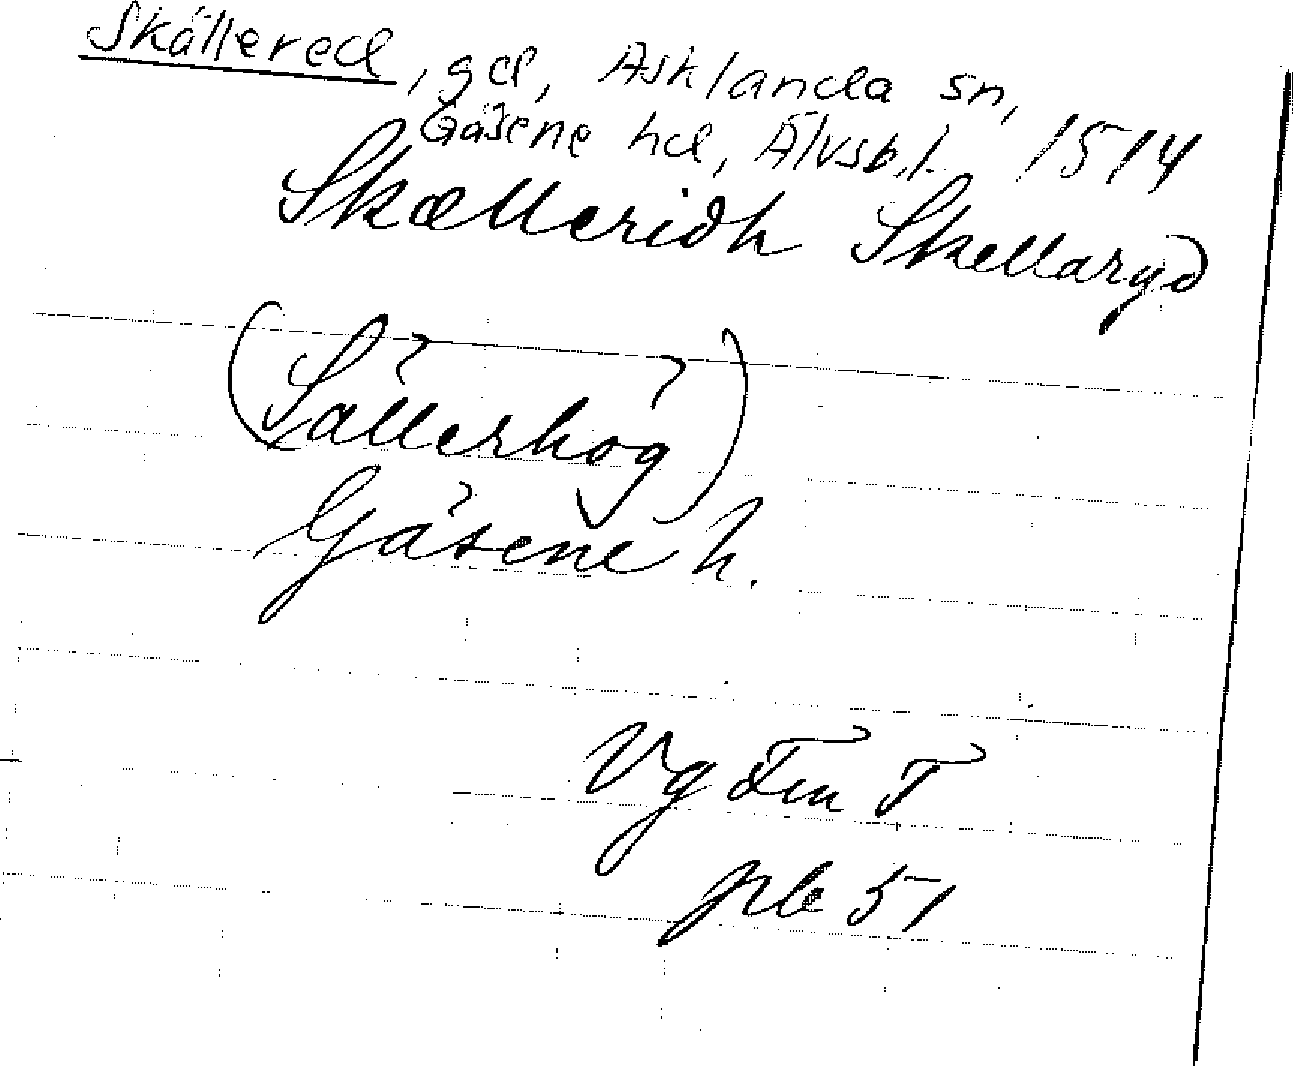 Skällered, gd, Asklanda sn,
Gäsene hd, Älvsb.l. 1514
Skælleridh Skellaryd
(Sällerhög)
Gäsene h.
Vg Fru T
pb 51